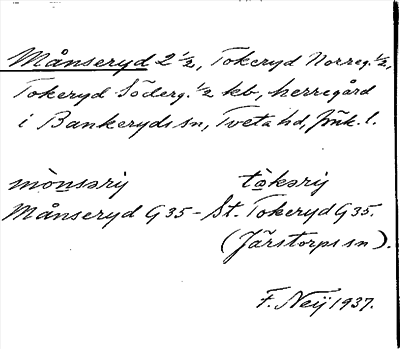 Månseryd 2 1/2, Tokeryd Norreg. 1/2,
Tokeryd Söderg. 1/2 kb, herregård
i Bankeryds sn, Tveta hd, Jönk. l.
mònsəriy tòkəriy
Månseryd G 35 - St. Tokeryd G 35.
(Järstorps sn).
F. Neij 1937.